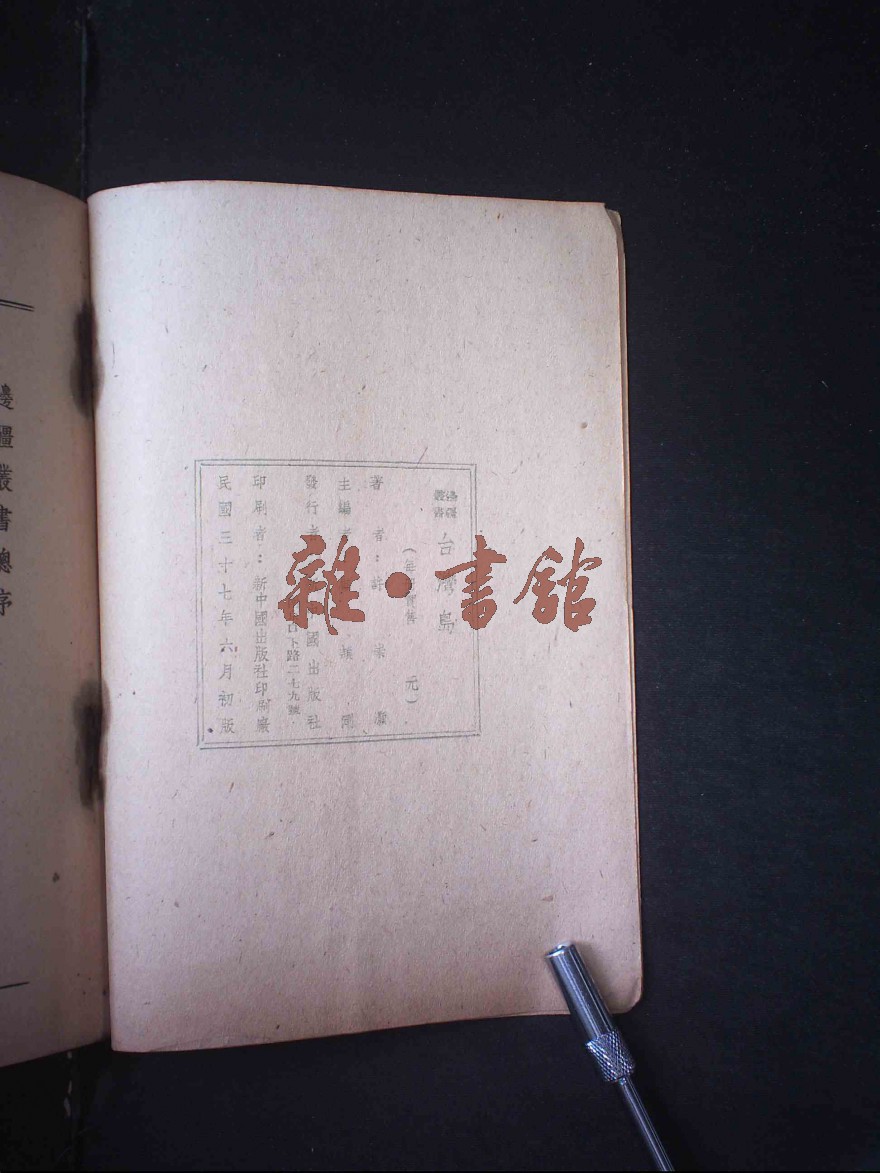 邊疆叢書 台灣島
(每冊實售 元)
著者：許崇灝
主編者 顧 剛
發行者 國出版社
白下路二七九號
印刷者：新中國出版社印刷廠
民國三十七年六月初版
邊疆叢書總序
雜·書館